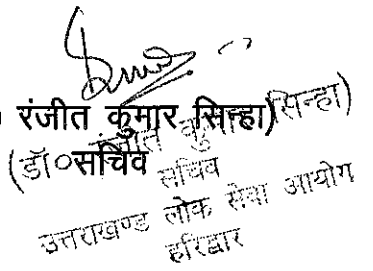 रंजीत कुमार सिन्हा)
सचिव
(डॉ० रंजीत कुमार सिन्हा)
सचिव
उत्तराखण्ड लोक सेवा आयोग
हरिद्वार